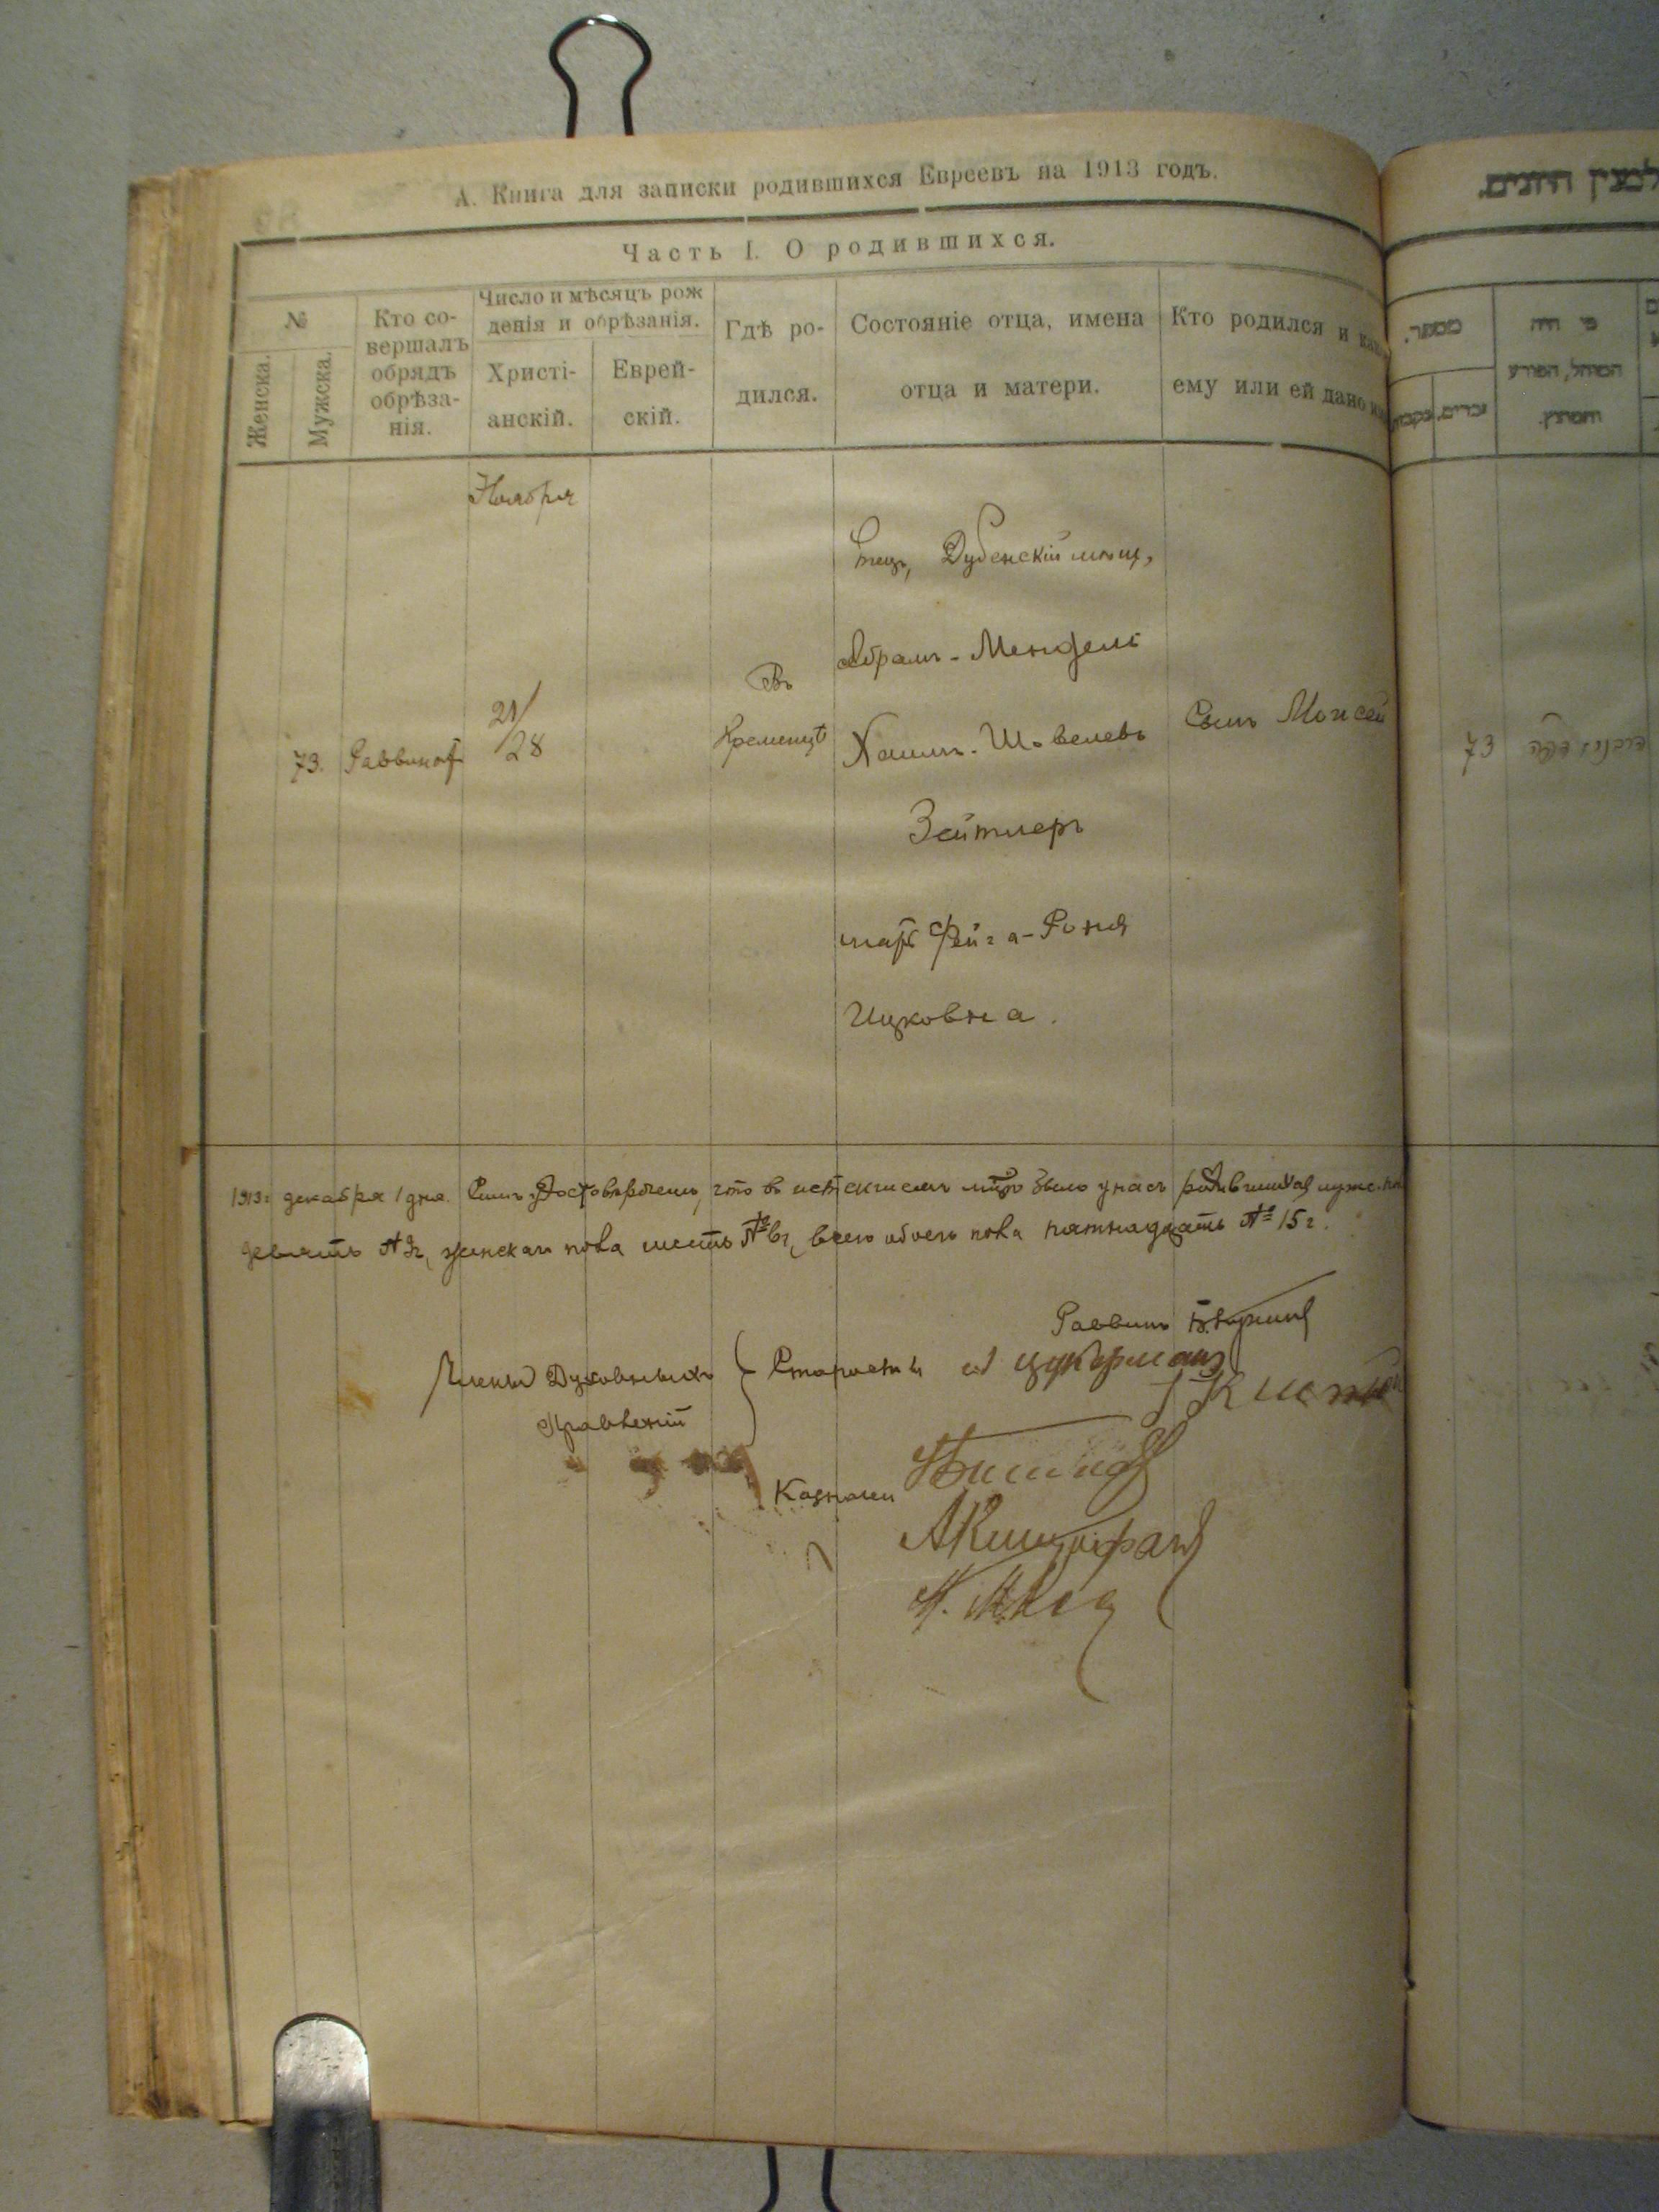 А. Книга для записки родившихся Евреевъ на 1913 годъ.
Часть I. О родившихся.
№
Женска.
Мужска.
Кто со-
вершалъ
обрядъ
обрѣза-
нія.
Число и мѣсяцъ рож
денія и обрѣзанія.
Христі-
анскій.
Еврей-
скій.
Гдѣ ро-
дился.
Состояніе отца, имена
отца и матери.
Кто родился и како
ему или ей дано им
Ноября
73.
21/28
Въ
Кременцѣ
Отецъ, Дубенскій мѣщ,
Абрамъ-Мендель
Хаимъ-Шовелевъ
Зейтлеръ
мать Фейга-Роня
Ицковна.
Сынъ Моисей
1913 г декабря 1 дня. Симъ удостовѣряемъ, что въ истекшемъ м-цѣ было у насъ родившихся мужс. по
девять № 9, женскаго пола шесть № 6, всего обоего пола пятнадцать № 15 г.
Раввинъ
Члены Духовныхъ
Правленій
Старосты
Цукерманъ
Казначеи
מספר.
זכרים.
נקבות
מי היה
המוהל, הפורע
והמוצץ.
73